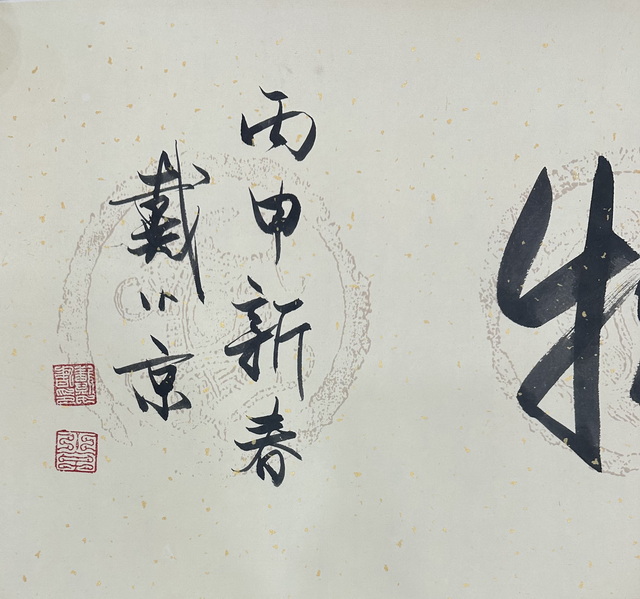 丙申新春
戴小京